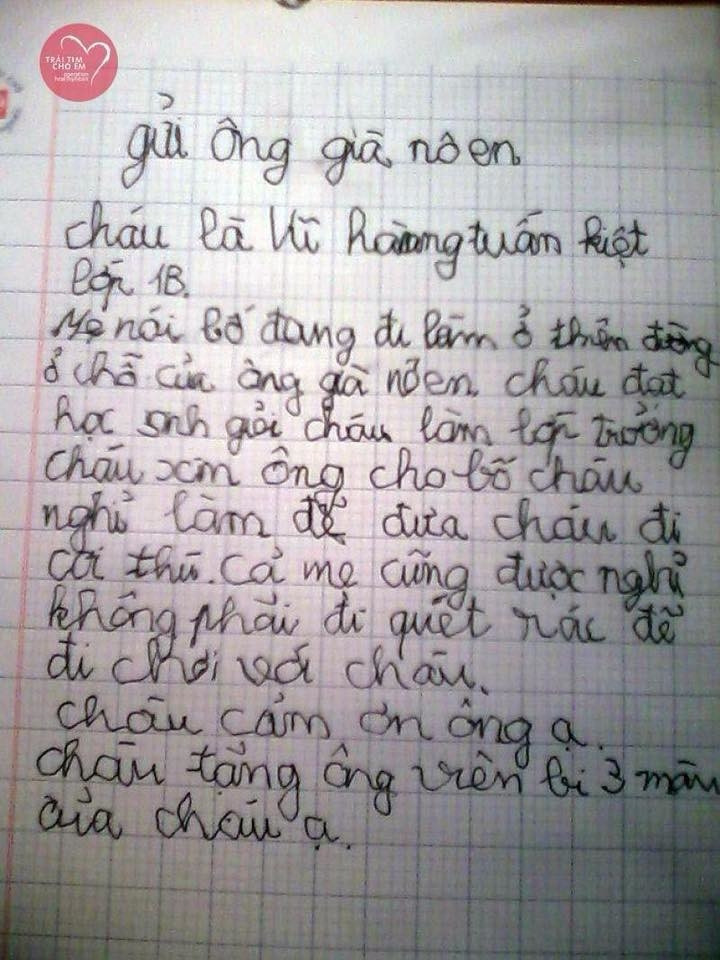 TRÁI TIM
CHO EM
operation
healthy heart
gửi ông già nôen
cháu là Vĩ hoàng tuấn kiệt
lớp 1B.
Mẹ nói bố đang đi làm ở thiên đường
ở chỗ của ông già nôen cháu đạt
học sinh giỏi cháu làm lớp trưởng
cháu xin ông cho bố cháu
nghỉ làm để đưa cháu đi
coi thú. cả mẹ cũng được nghỉ
không phải đi quét rác để
đi chơi với cháu.
cháu cảm ơn ông ạ.
cháu tặng ông viên bi 3 màu
của cháu ạ.